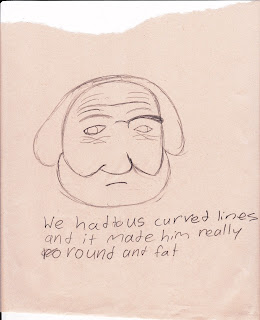 We had to us curved lines
and it made him really
round and fat